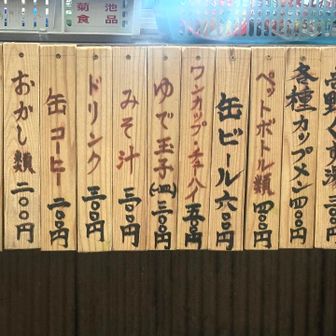 各種カップメン四〇〇円
ペットボトル類四〇〇円
缶ビール六〇〇円
ワンカップ・チューハイ五〇〇円
ゆで玉子三〇〇円
みそ汁三〇〇円
ドリンク三〇〇円
缶コーヒー二〇〇円
おかし類二〇〇円